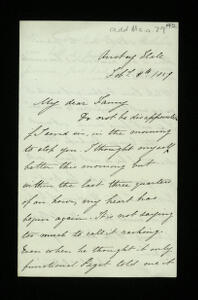 add Ms. a. 79
Anstey Hall
Feb. 4th
My dear Fanny
Do not be disappointed
if I send in, in the morning
to stop you. I thought myself
better this morning but
within the last three quarters
of an hour, my heart has
begun again. It is not saying
too much to call it racking.
Even when he thought it only
functional Paget told me it